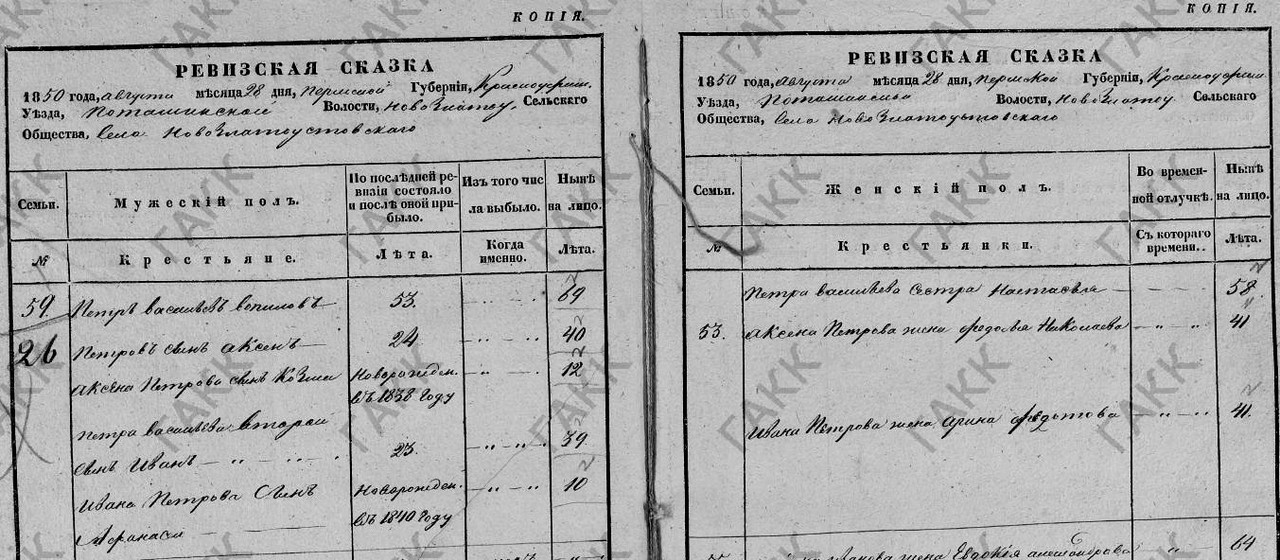 КОПІЯ.
РЕВИЗСКАЯ СКАЗКА
1850 года, августа мѣсяца 28 дня, Пермской Губерніи, Красноуфим.
Уѣзда, Поташинской Волости, Новозлатоу, Сельскаго
Общества, Села Новозлатоустовскаго
Семьи.
Мужескій полъ.
По послѣдней ревизіи состояло и послѣ оной прибыло.
Изъ того числа выбыло.
Нынѣ на лицо.
№
Крестьяне.
Лѣта.
Когда именно.
Лѣта.
59. Петръ васильевъ 53. 69
26 Петровъ сынъ аксенъ 24 40
аксена Петрова сынъ Козма Новорожден. 12
въ 1838 году
Петра васильева второй
сынъ Иванъ 23. 39
Ивана Петрова сынъ Новорожден. 10
Афанасий въ 1840 году
КОПІЯ.
РЕВИЗСКАЯ СКАЗКА
1850 года, августа мѣсяца 28 дня, Пермской Губерніи, Красноуфим.
Уѣзда, Поташинской Волости, Новозлатоу Сельскаго
Общества, Села Новозлатоустовскаго
Семьи.
Женскій полъ.
Во временной отлучкѣ.
Нынѣ на лицо.
№
Крестьянки.
Съ котораго времени.
Лѣта.
Петра васильева сестра Настасья 58.
53. аксена Петрова жена федосья Николаева 41
Ивана Петрова жена арина 41.
жена Евдокія александрова 64
ГАКК